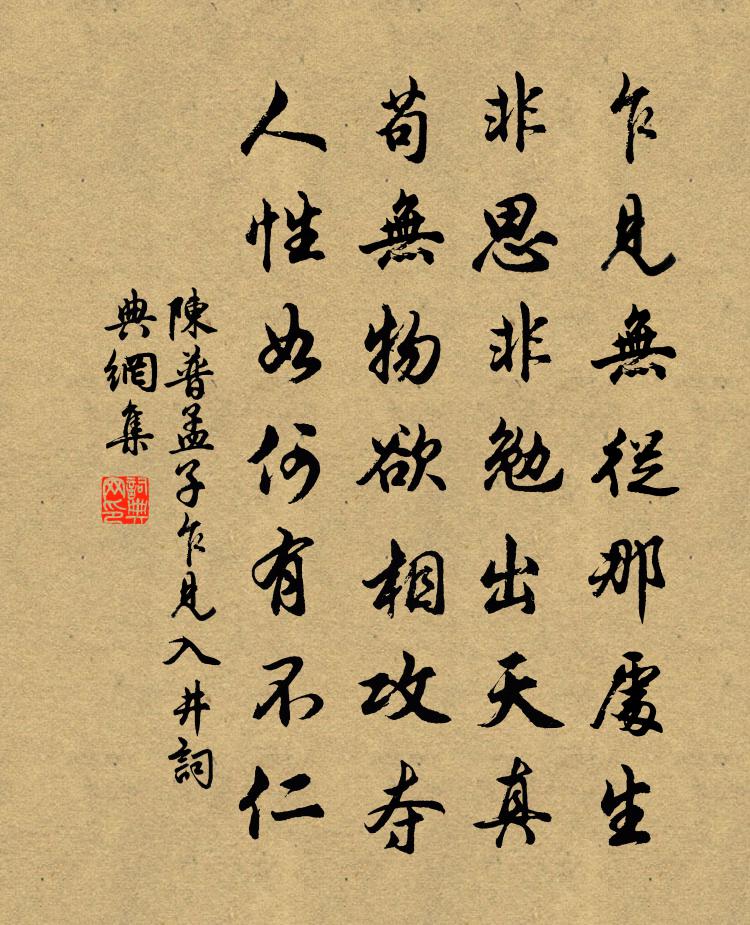 乍見無從那處生
非思非勉出天真
苟無物欲相攻夺
人性如何有不仁
陳普孟子乍見入井詞
典網集
詞典网印